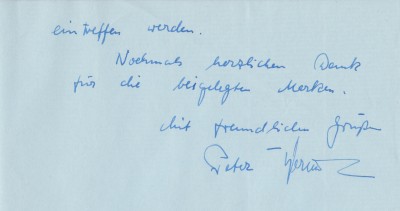 eintreffen werden.
Nochmals herzlichen Dank
für die beigelegten Marken.
Mit freundlichen Grüßen
Peter